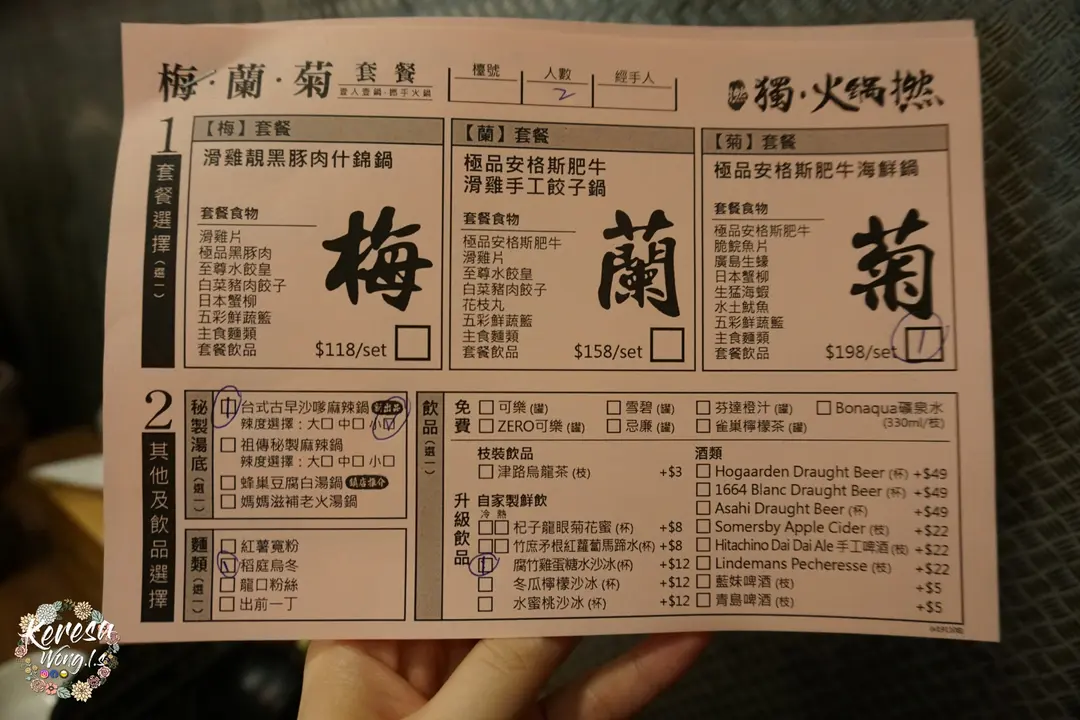 梅·蘭·菊 套餐
壹人壹鍋·撈手火鍋
檯號
人數
經手人
2
獨·火鍋撚
1
套餐選擇(選一)
【梅】套餐
滑雞靚黑豚肉什錦鍋
套餐食物
滑雞片
極品黑豚肉
至尊水餃皇
白菜豬肉餃子
日本蟹柳
五彩鮮蔬籃
主食麵類
套餐飲品
梅
$118/set
【蘭】套餐
極品安格斯肥牛
滑雞手工餃子鍋
套餐食物
極品安格斯肥牛
滑雞片
至尊水餃皇
白菜豬肉餃子
花枝丸
五彩鮮蔬籃
主食麵類
套餐飲品
蘭
$158/set
【菊】套餐
極品安格斯肥牛海鮮鍋
套餐食物
極品安格斯肥牛
脆鯇魚片
廣島生蠔
日本蟹柳
生猛海蝦
水土魷魚
五彩鮮蔬籃
主食麵類
套餐飲品
菊
$198/set
1
2
其他及飲品選擇
秘製湯底(選一)
台式古早沙嗲麻辣鍋
辣度選擇：大 中 小
祖傳秘製麻辣鍋
辣度選擇：大 中 小
蜂巢豆腐白湯鍋 鎮店推介
媽媽滋補老火湯鍋
麵類(選一)
紅薯寬粉
稻庭烏冬
龍口粉絲
出前一丁
飲品(選一)
免費
可樂 (罐)
雪碧 (罐)
芬達橙汁 (罐)
Bonaqua礦泉水
(330ml/枝)
ZERO可樂 (罐)
忌廉 (罐)
雀巢檸檬茶 (罐)
升級飲品
枝裝飲品
津路烏龍茶 (枝) +$3
自家製鮮飲
冷 熱
杞子龍眼菊花蜜 (杯) +$8
竹庶矛根紅蘿蔔馬蹄水(杯) +$8
腐竹雞蛋糖水沙冰(杯) +$12
冬瓜檸檬沙冰 (杯) +$12
水蜜桃沙冰 (杯) +$12
酒類
Hogaarden Draught Beer (杯) +$49
1664 Blanc Draught Beer (杯) +$49
Asahi Draught Beer (杯) +$49
Somersby Apple Cider (枝) +$22
Hitachino Dai Dai Ale 手工啤酒 (枝) +$22
Lindemans Pecheresse (枝) +$22
藍妹啤酒 (枝) +$5
青島啤酒 (枝) +$5
Keresa
Wong.l.s